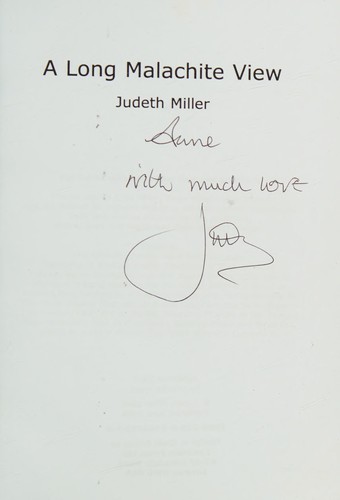 A Long Malachite View
Judeth Miller
Anne
with much love